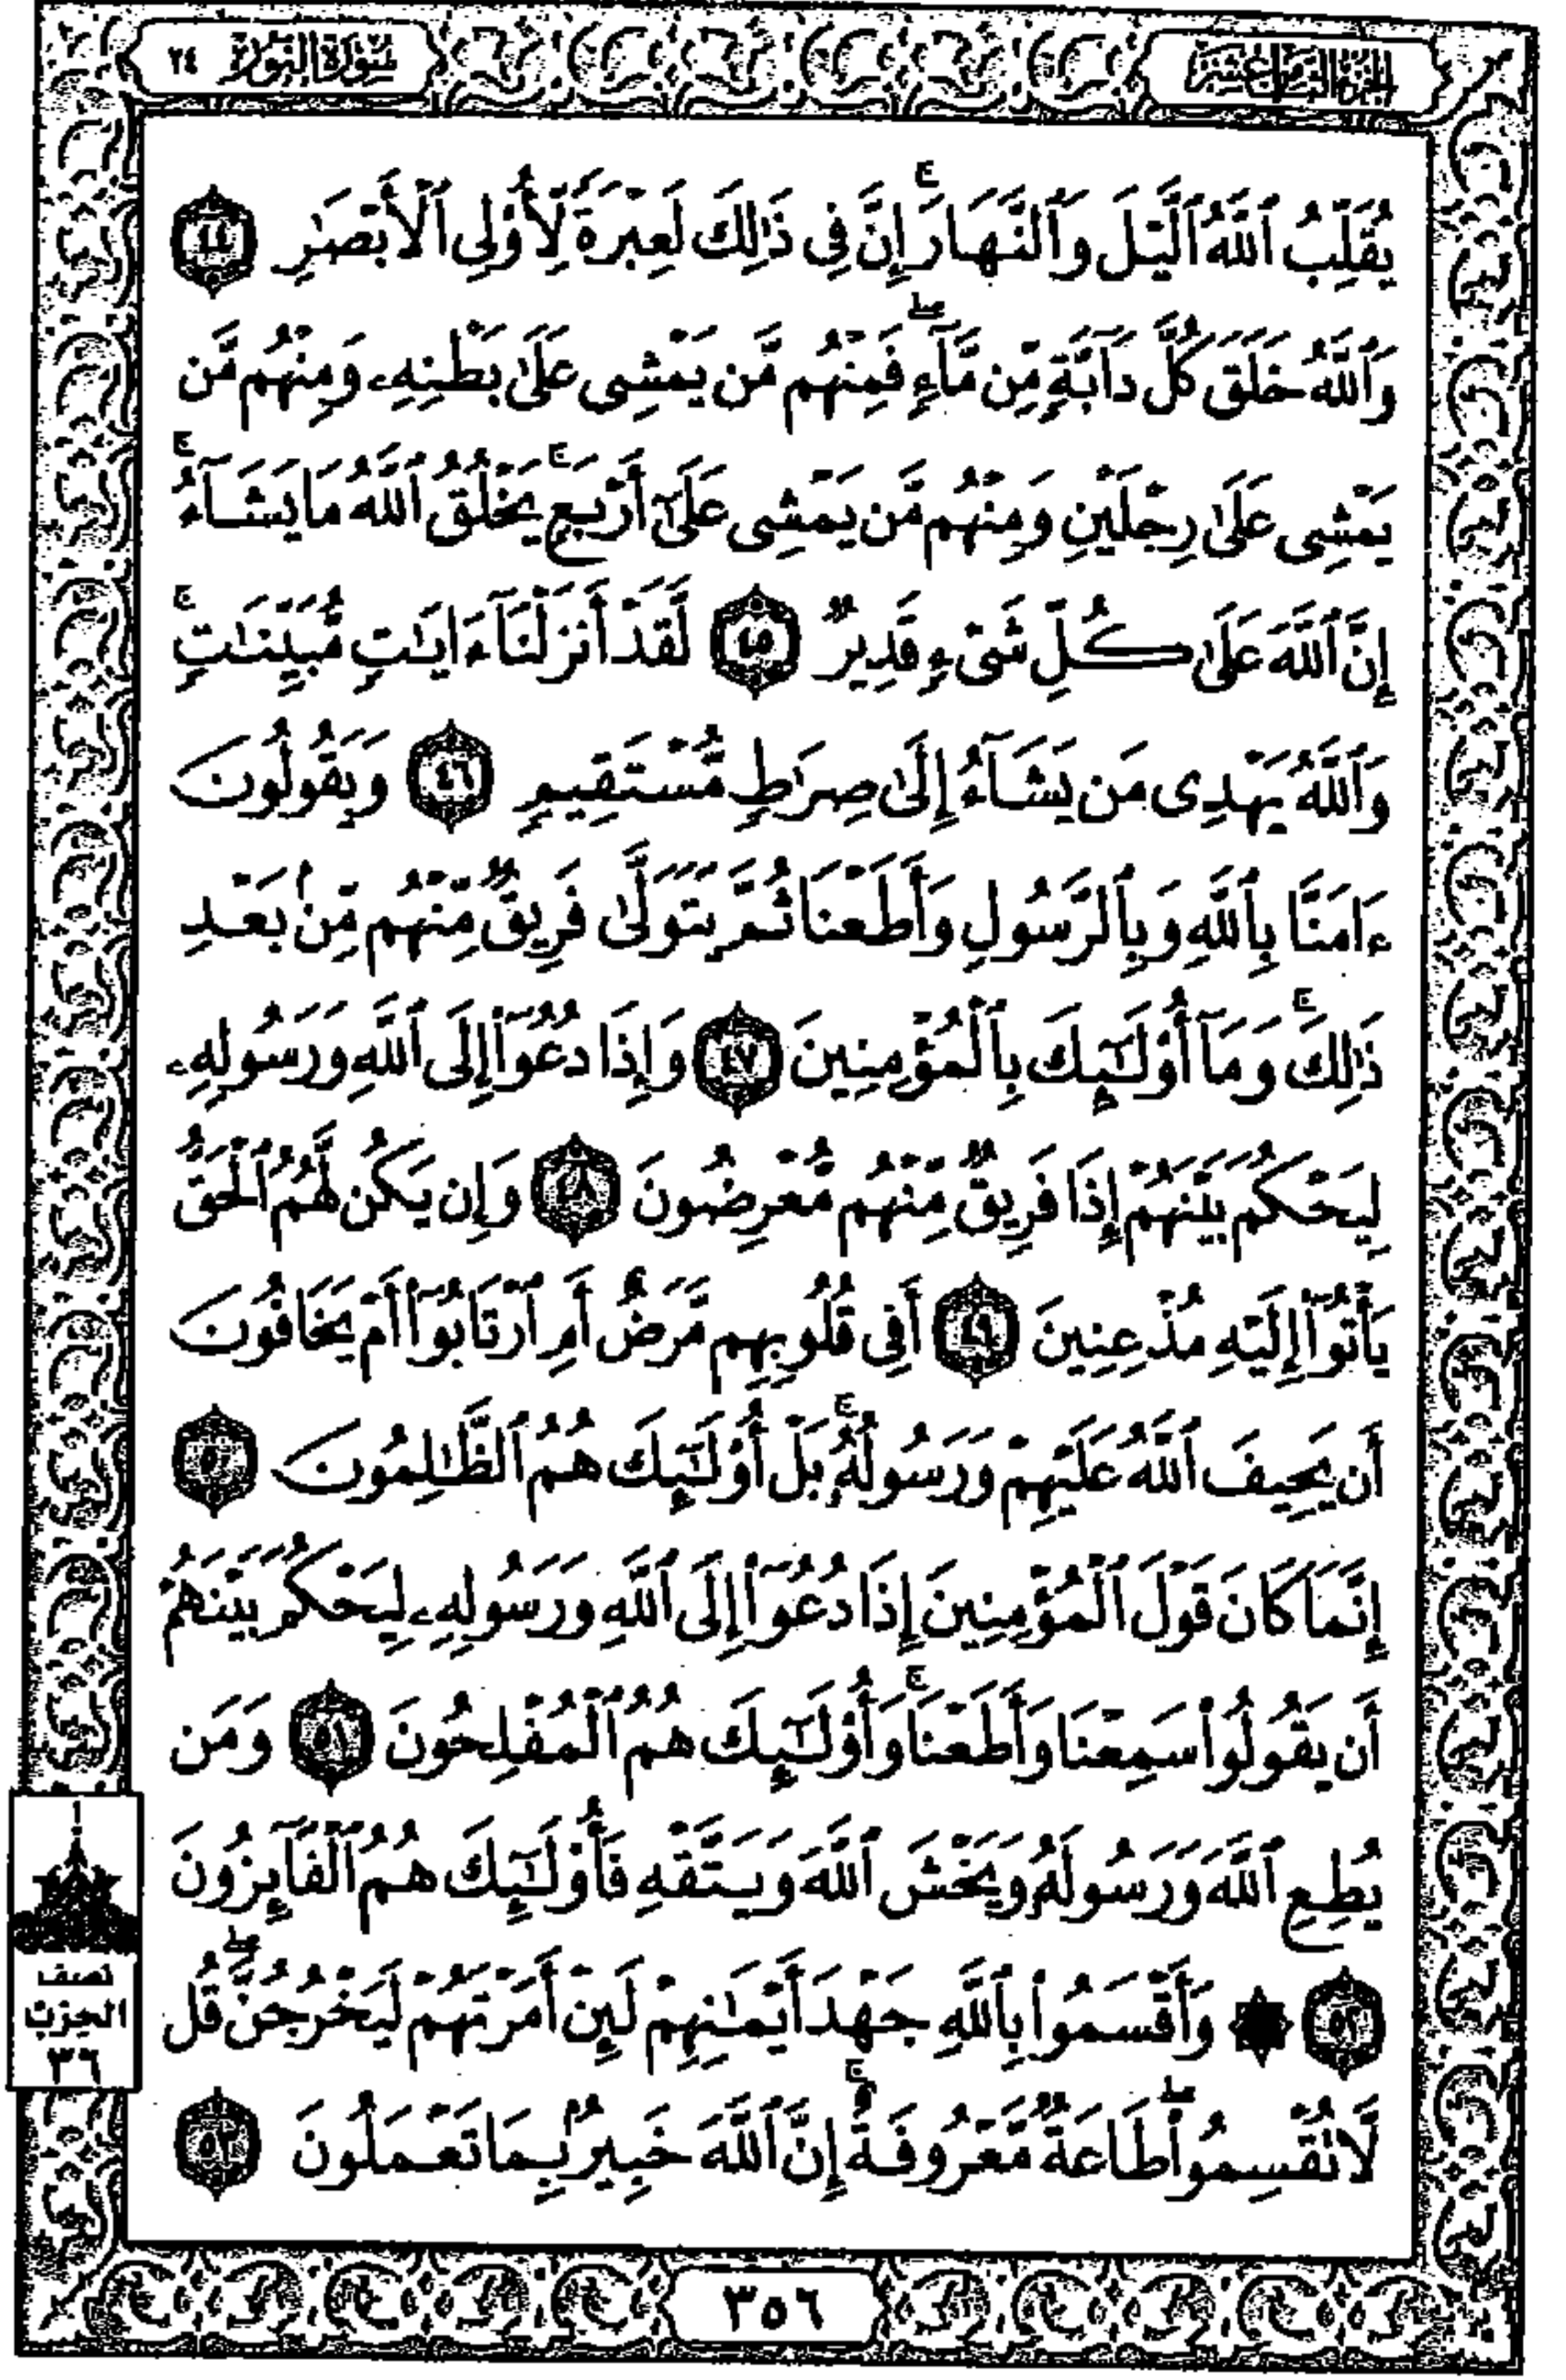 الجزء الثامن عشر
سورة النور ٢٤
يُقَلِّبُ ٱللَّهُ ٱلَّيْلَ وَٱلنَّهَارَ ۚ إِنَّ فِى ذَٰلِكَ لَعِبْرَةً لِّأُو۟لِى ٱلْأَبْصَٰرِ ٤٤
وَٱللَّهُ خَلَقَ كُلَّ دَآبَّةٍ مِّن مَّآءٍ ۖ فَمِنْهُم مَّن يَمْشِى عَلَىٰ بَطْنِهِۦ وَمِنْهُم مَّن
يَمْشِى عَلَىٰ رِجْلَيْنِ وَمِنْهُم مَّن يَمْشِى عَلَىٰٓ أَرْبَعٍ ۚ يَخْلُقُ ٱللَّهُ مَا يَشَآءُ ۚ
إِنَّ ٱللَّهَ عَلَىٰ كُلِّ شَىْءٍ قَدِيرٌ ٤٥ لَّقَدْ أَنزَلْنَآ ءَايَٰتٍ مُّبَيِّنَٰتٍ ۚ
وَٱللَّهُ يَهْدِى مَن يَشَآءُ إِلَىٰ صِرَٰطٍ مُّسْتَقِيمٍ ٤٦ وَيَقُولُونَ
ءَامَنَّا بِٱللَّهِ وَبِٱلرَّسُولِ وَأَطَعْنَا ثُمَّ يَتَوَلَّىٰ فَرِيقٌ مِّنْهُم مِّنۢ بَعْدِ
ذَٰلِكَ ۚ وَمَآ أُو۟لَٰٓئِكَ بِٱلْمُؤْمِنِينَ ٤٧ وَإِذَا دُعُوٓا۟ إِلَى ٱللَّهِ وَرَسُولِهِۦ
لِيَحْكُمَ بَيْنَهُمْ إِذَا فَرِيقٌ مِّنْهُم مُّعْرِضُونَ ٤٨ وَإِن يَكُن لَّهُمُ ٱلْحَقُّ
يَأْتُوٓا۟ إِلَيْهِ مُذْعِنِينَ ٤٩ أَفِى قُلُوبِهِم مَّرَضٌ أَمِ ٱرْتَابُوٓا۟ أَمْ يَخَافُونَ
أَن يَحِيفَ ٱللَّهُ عَلَيْهِمْ وَرَسُولُهُۥ ۚ بَلْ أُو۟لَٰٓئِكَ هُمُ ٱلظَّٰلِمُونَ ٥٠
إِنَّمَا كَانَ قَوْلَ ٱلْمُؤْمِنِينَ إِذَا دُعُوٓا۟ إِلَى ٱللَّهِ وَرَسُولِهِۦ لِيَحْكُمَ بَيْنَهُمْ
أَن يَقُولُوا۟ سَمِعْنَا وَأَطَعْنَا ۚ وَأُو۟لَٰٓئِكَ هُمُ ٱلْمُفْلِحُونَ ٥١ وَمَن
يُطِعِ ٱللَّهَ وَرَسُولَهُۥ وَيَخْشَ ٱللَّهَ وَيَتَّقْهِ فَأُو۟لَٰٓئِكَ هُمُ ٱلْفَآئِزُونَ
٥٢ ۞ وَأَقْسَمُوا۟ بِٱللَّهِ جَهْدَ أَيْمَٰنِهِمْ لَئِنْ أَمَرْتَهُمْ لَيَخْرُجُنَّ ۖ قُل
لَّا تُقْسِمُوا۟ ۖ طَاعَةٌ مَّعْرُوفَةٌ ۚ إِنَّ ٱللَّهَ خَبِيرٌۢ بِمَا تَعْمَلُونَ ٥٣
نصف
الحزب
٣٦
٣٥٦